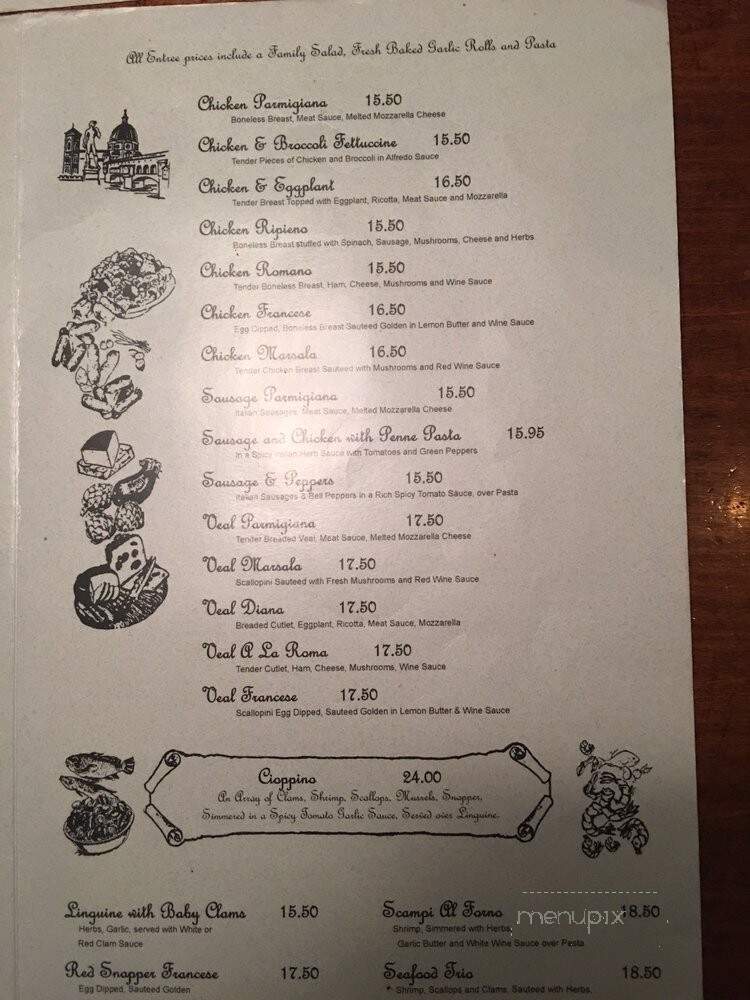 All Entree prices include a Family Salad, Fresh Baked Garlic Rolls and Pasta
Chicken Parmigiana 15.50
Boneless Breast, Meat Sauce, Melted Mozzarella Cheese
Chicken & Broccoli Fettuccine 15.50
Tender Pieces of Chicken and Broccoli in Alfredo Sauce
Chicken & Eggplant 16.50
Tender Breast Topped with Eggplant, Ricotta, Meat Sauce and Mozzarella
Chicken Ripieno 15.50
Boneless Breast stuffed with Spinach, Sausage, Mushrooms, Cheese and Herbs
Chicken Romano 15.50
Tender Boneless Breast, Ham, Cheese, Mushrooms and Wine Sauce
Chicken Francese 16.50
Egg Dipped, Boneless Breast Sauteed Golden in Lemon Butter and Wine Sauce
Chicken Marsala 16.50
Tender Chicken Breast Sauteed with Mushrooms and Red Wine Sauce
Sausage Parmigiana 15.50
Italian Sausages, Meat Sauce, Melted Mozzarella Cheese
Sausage and Chicken with Penne Pasta 15.95
In a Spicy Italian Herb Sauce with Tomatoes and Green Peppers
Sausage & Peppers 15.50
Italian Sausages & Bell Peppers in a Rich Spicy Tomato Sauce, over Pasta
Veal Parmigiana 17.50
Tender Breaded Veal, Meat Sauce, Melted Mozzarella Cheese
Veal Marsala 17.50
Scallopini Sauteed with Fresh Mushrooms and Red Wine Sauce
Veal Diana 17.50
Breaded Cutlet, Eggplant, Ricotta, Meat Sauce, Mozzarella
Veal A La Roma 17.50
Tender Cutlet, Ham, Cheese, Mushrooms, Wine Sauce
Veal Francese 17.50
Scallopini Egg Dipped, Sauteed Golden in Lemon Butter & Wine Sauce
Cioppino 24.00
An Array of Clams, Shrimp, Scallops, Mussels, Snapper,
Simmered in a Spicy Tomato Garlic Sauce, Served over Linguine.
Linguine with Baby Clams 15.50
Herbs, Garlic, served with White or
Red Clam Sauce
Red Snapper Francese 17.50
Egg Dipped, Sauteed Golden
Scampi Al Forno 18.50
Shrimp, Simmered with Herbs,
Garlic Butter and White Wine Sauce over Pasta
Seafood Trio 18.50
* Shrimp, Scallops and Clams, Sauteed with Herbs,
menupix